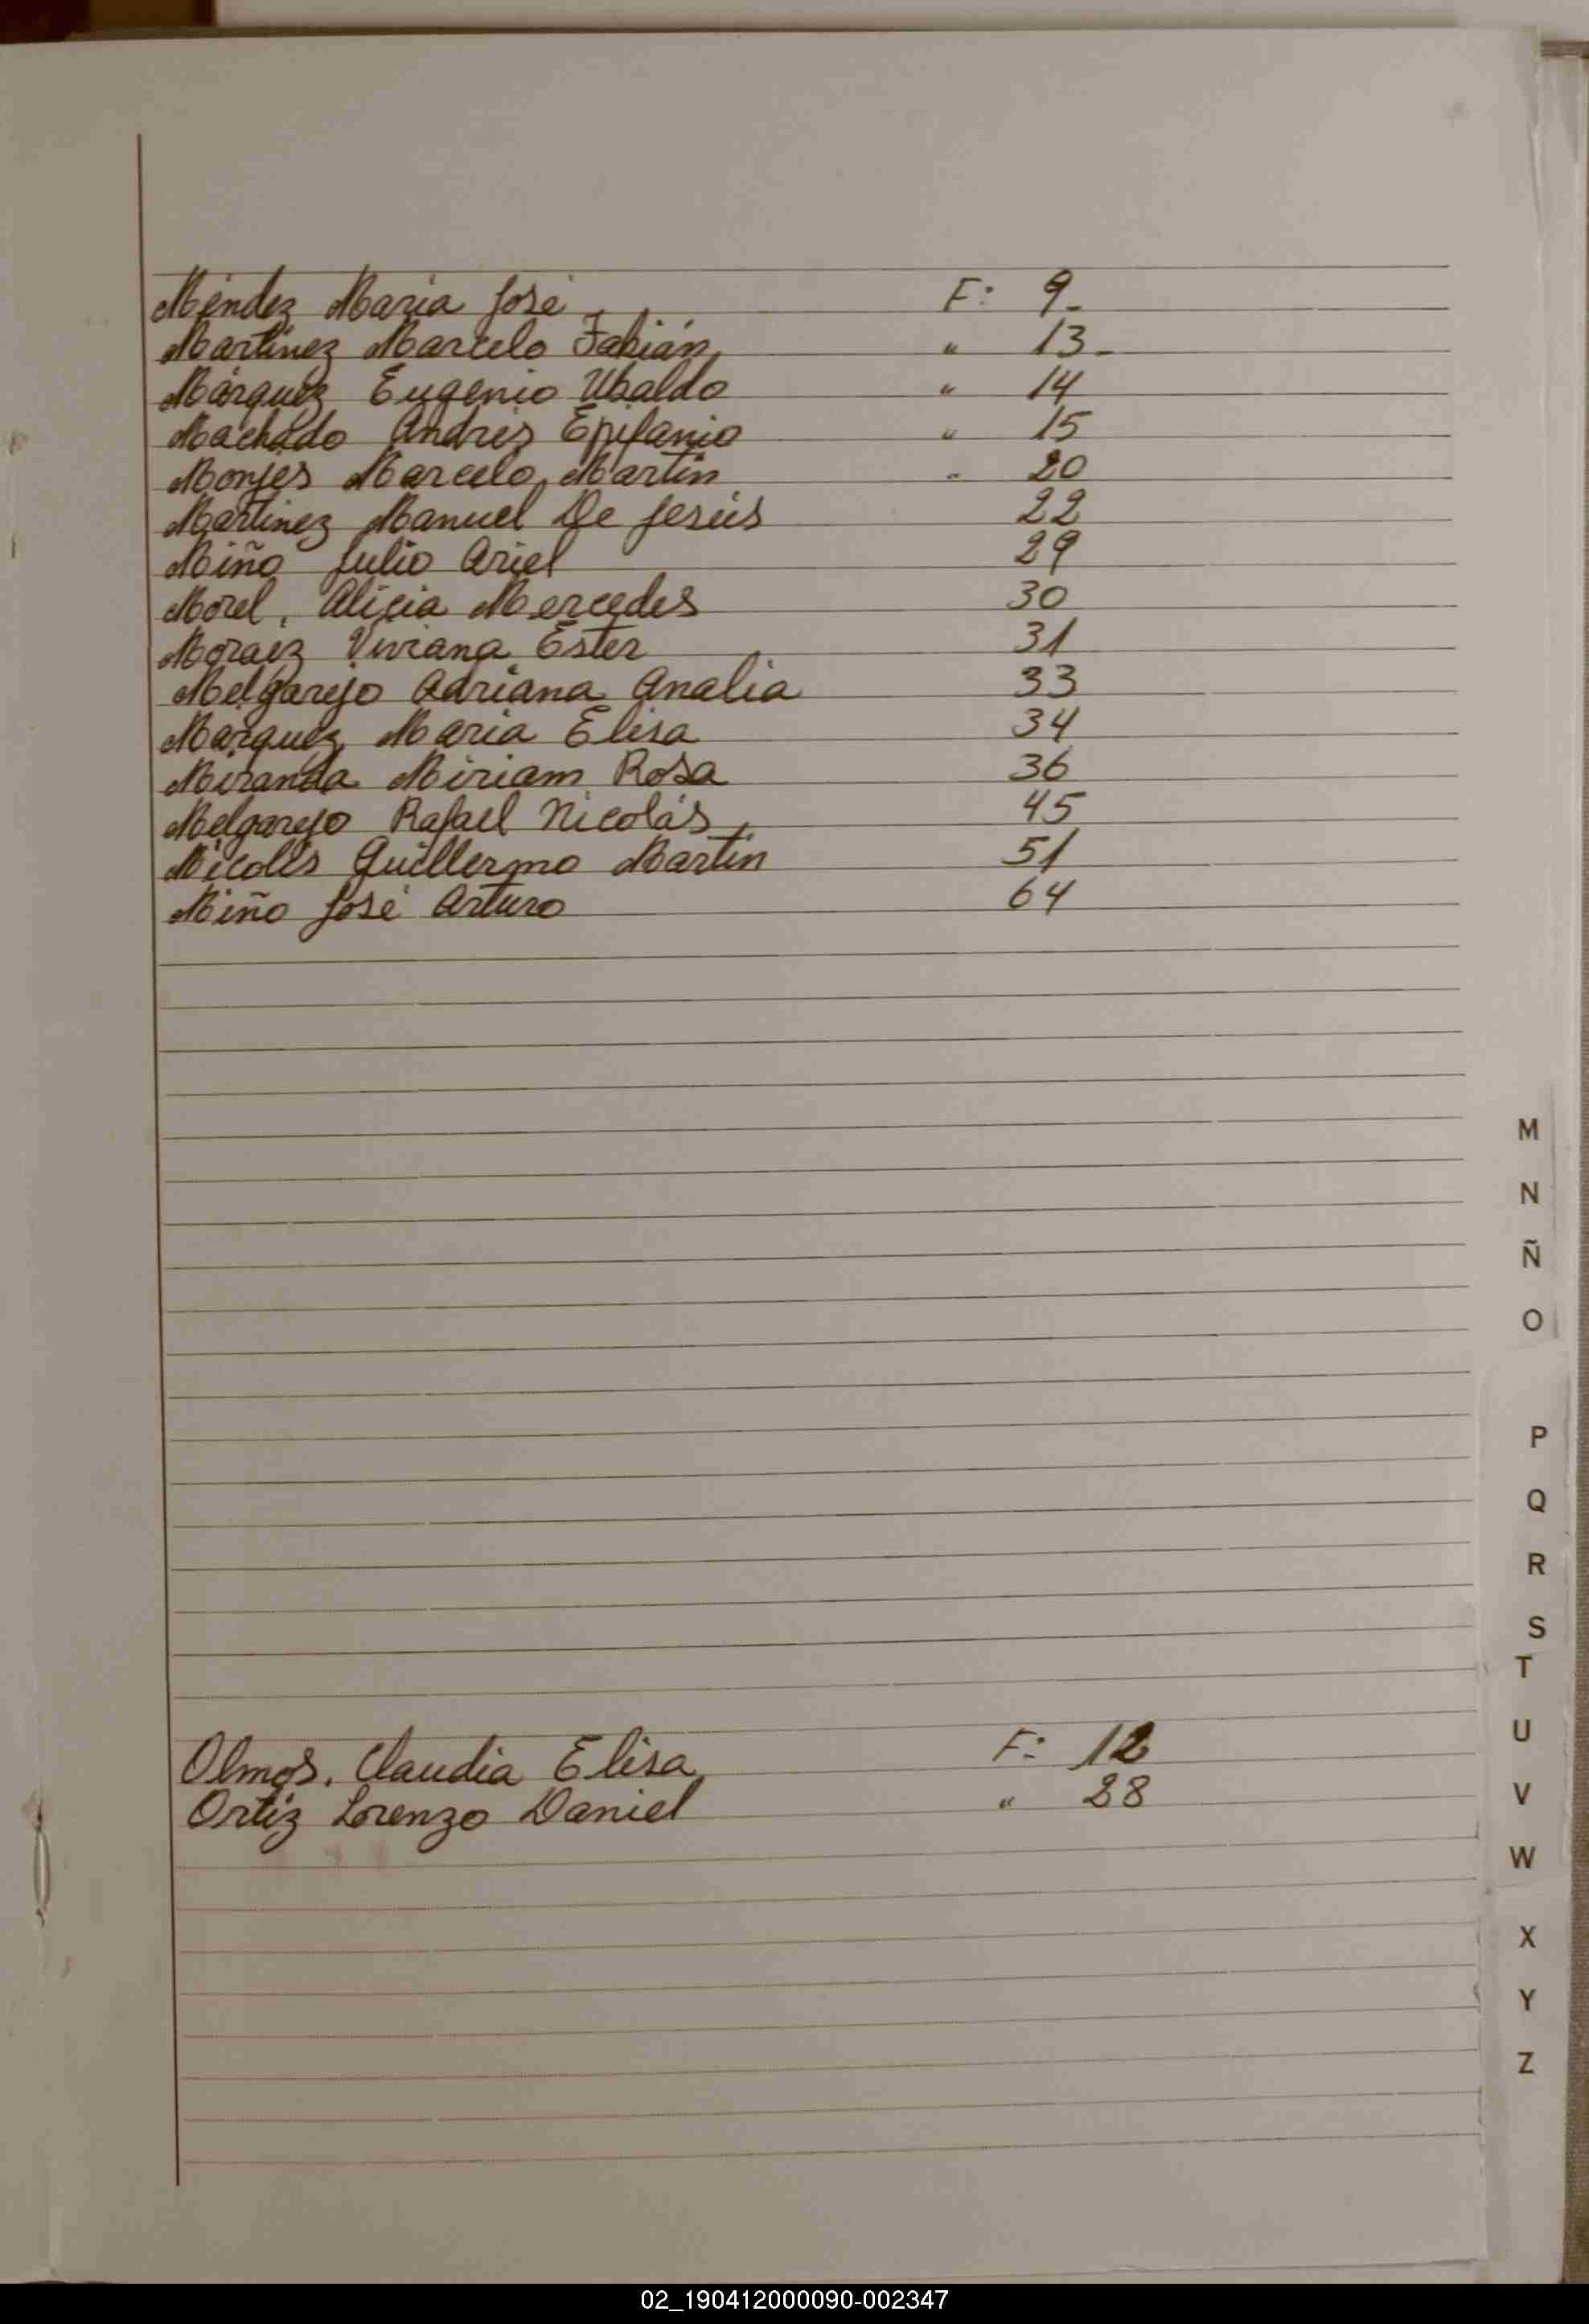 Méndez María José F: 9-
Martínez Marcelo Fabián, " 13-
Márquez Eugenio Ubaldo " 14
Machado Andrés Epifanio " 15
Monjes Marcelo Martín " 20
Martinez Manuel De Jesús 22
Miño Julio Ariel 29
Morel, Alicia Mercedes 30
Moraez Viviana Ester 31
Melgarejo Adriana Analía 33
Marquez María Elisa 34
Miranda Miriam Rosa 36
Melgarejo Rafael Nicolás 45
Micolis Guillermo Martín 51
Miño José Arturo 64
M
N
Ñ
O
P
Q
R
S
T
U
V
W
X
Y
Z
Olmos, Claudia Elisa F: 12
Ortiz Lorenzo Daniel " 28
02_190412000090-002347